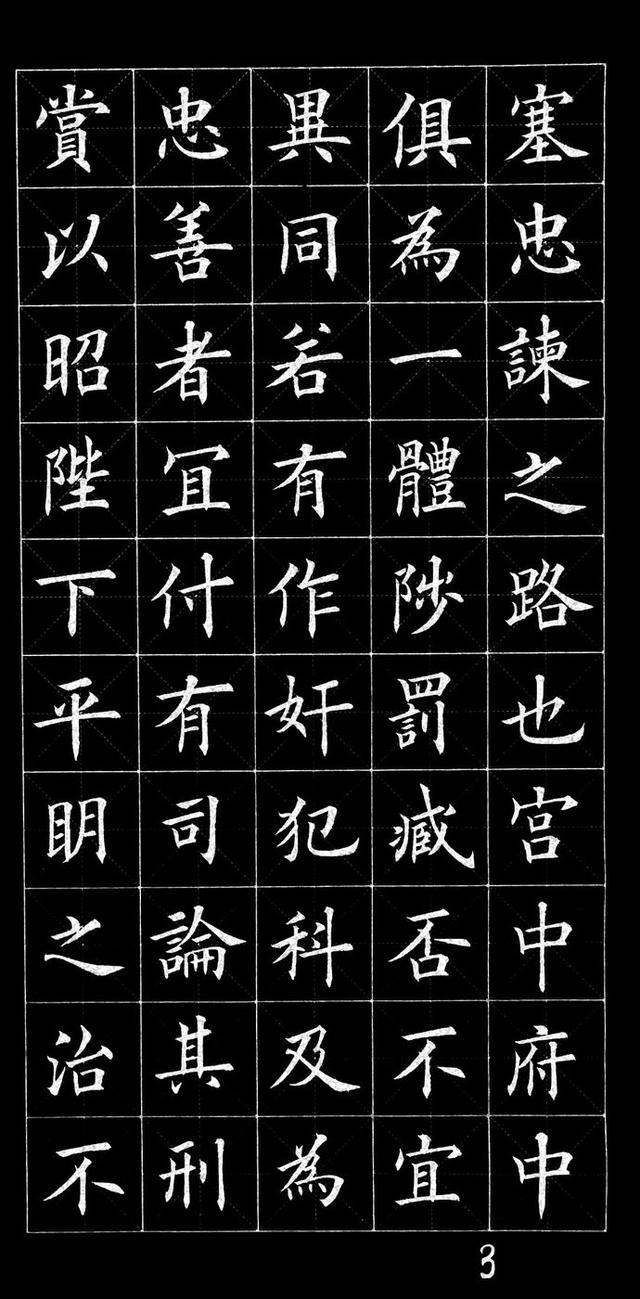 塞忠諫之路也宫中府中
俱為一體陟罰臧否不宜
異同若有作奸犯科及為
忠善者冝付有司論其刑
賞以昭陛下平眀之治不
3